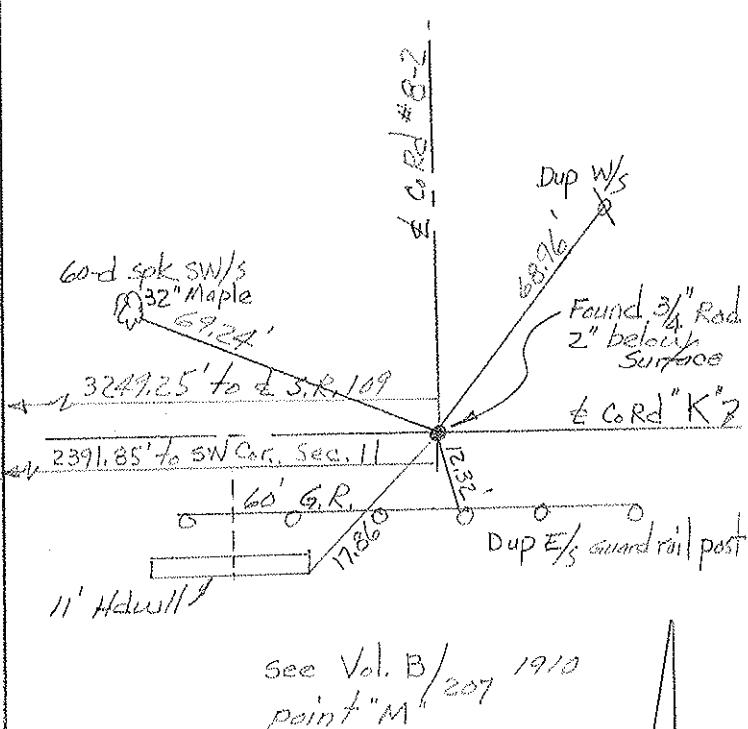 ℄ Co Rd # 8-2
Dup W/s
68.96'
60-d spk SW/s
32" Maple
69.24'
Found 3/4" Rod
2" below
Surface
3249.25' to ℄ S.R. 109
℄ Co Rd "K"
2391.85' to SW Cor. Sec. 11
12.32'
60' G.R.
17.86
Dup E/s guard rail post
11' Hdwll
See Vol. B/207 1910
point "M"